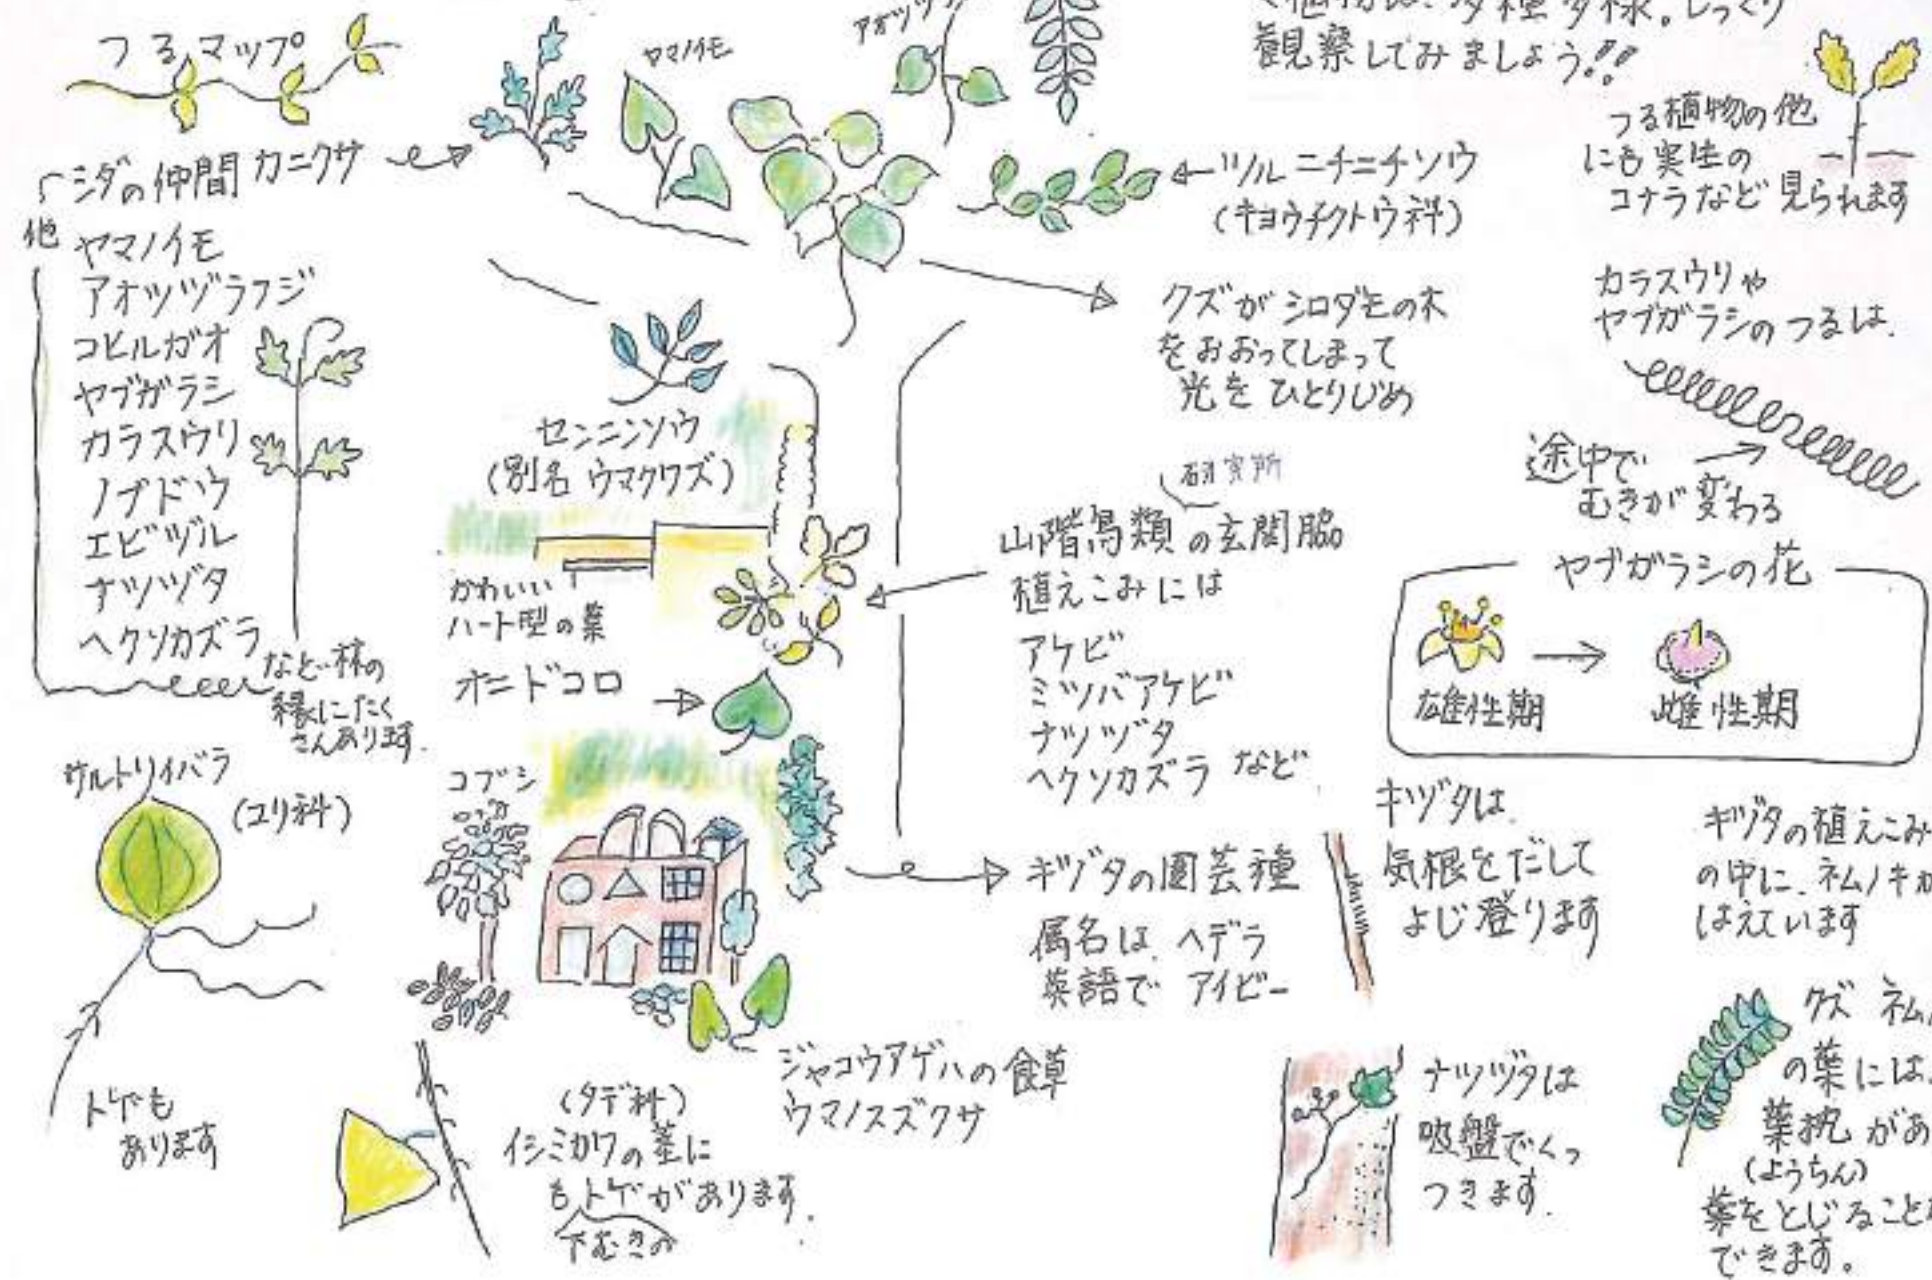 つるマップ
ヤマノイモ
アオツヅ
観察してみましょう!!
つる植物の他
にも実生の
コナラなど見られます
シダの仲間 カニクサ
他
ヤマノイモ
アオツヅラフジ
コヒルガオ
ヤブガラシ
カラスウリ
ノブドウ
エビヅル
ナツヅタ
ヘクソカズラ
など林の
縁にたく
さんあります.
ツルニチニチソウ
(キョウチクトウ科)
クズがシロダモの木
をおおってしまって
光をひとりじめ
カラスウリや
ヤブガラシのつるは.
途中で
むきが変わる
センニンソウ
(別名 ウマクワズ)
研究所
山階鳥類の玄関脇
植えこみには
アケビ
ミツバアケビ
ナツヅタ
ヘクソカズラ など
かわいい
ハート型の葉
オニドコロ
ヤブガラシの花
雄性期
雌性期
サルトリイバラ
(ユリ科)
トゲも
あります
コブシ
キヅタの園芸種
属名は ヘデラ
英語で アイビー
キヅタは.
気根をだして
よじ登ります
キヅタの植えこみ
の中に.ネムノキが
はえています
ジャコウアゲハの食草
ウマノスズクサ
(タデ科)
イシミカワの茎に
もトゲがあります.
下むきの
ナツヅタは
吸盤でくっ
つきます.
クズ ネム
の葉には.
葉枕があ
(ようちん)
葉をとじること
できます。